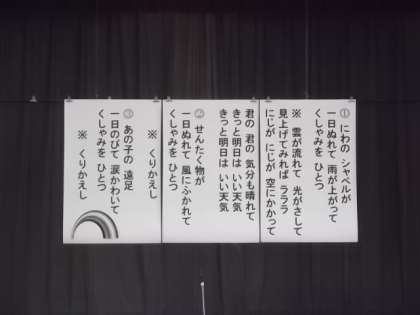 ① にわの シャベルが
一日ぬれて 雨が上がって
くしゃみを ひとつ
※ 雲が流れて 光がさして
見上げてみれば ラララ
にじが にじが 空にかかって
君の 君の 気分も晴れて
きっと明日は いい天気
きっと明日は いい天気
② せんたく物が
一日ぬれて 風にふかれて
くしゃみを ひとつ
※ くりかえし
③ あの子の 遠足
一日のびて 涙かわいて
くしゃみを ひとつ
※ くりかえし